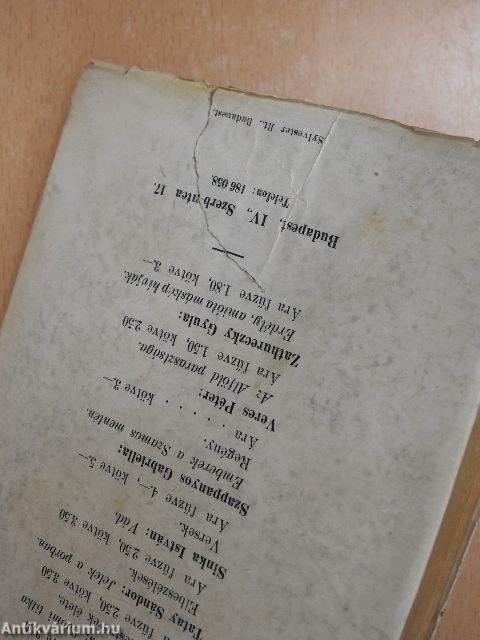 élete.
fűzve 2.50, kötve 3.50
Tatay Sándor: Jelek a porban.
Elbeszélések.
Ára fűzve 2.50, kötve 3.50
Sinka István: Vád.
Versek.
Ára fűzve 4.—, kötve 5.—
Szappanyos Gabriella:
Emberek a Szamos mentén.
Regény.
Ára . . . . . kötve 3.—
Veres Péter:
Az Alföld parasztsága.
Ára fűzve 1.50, kötve 2.50
Zathureczky Gyula:
Erdély, amióta máskép hívják.
Ára fűzve 1.80, kötve 3.—
Budapest, IV., Szerb-utca 17.
Telefon: 186 058.
Sylvester Rt., Budapest.
Antikvárium.hu